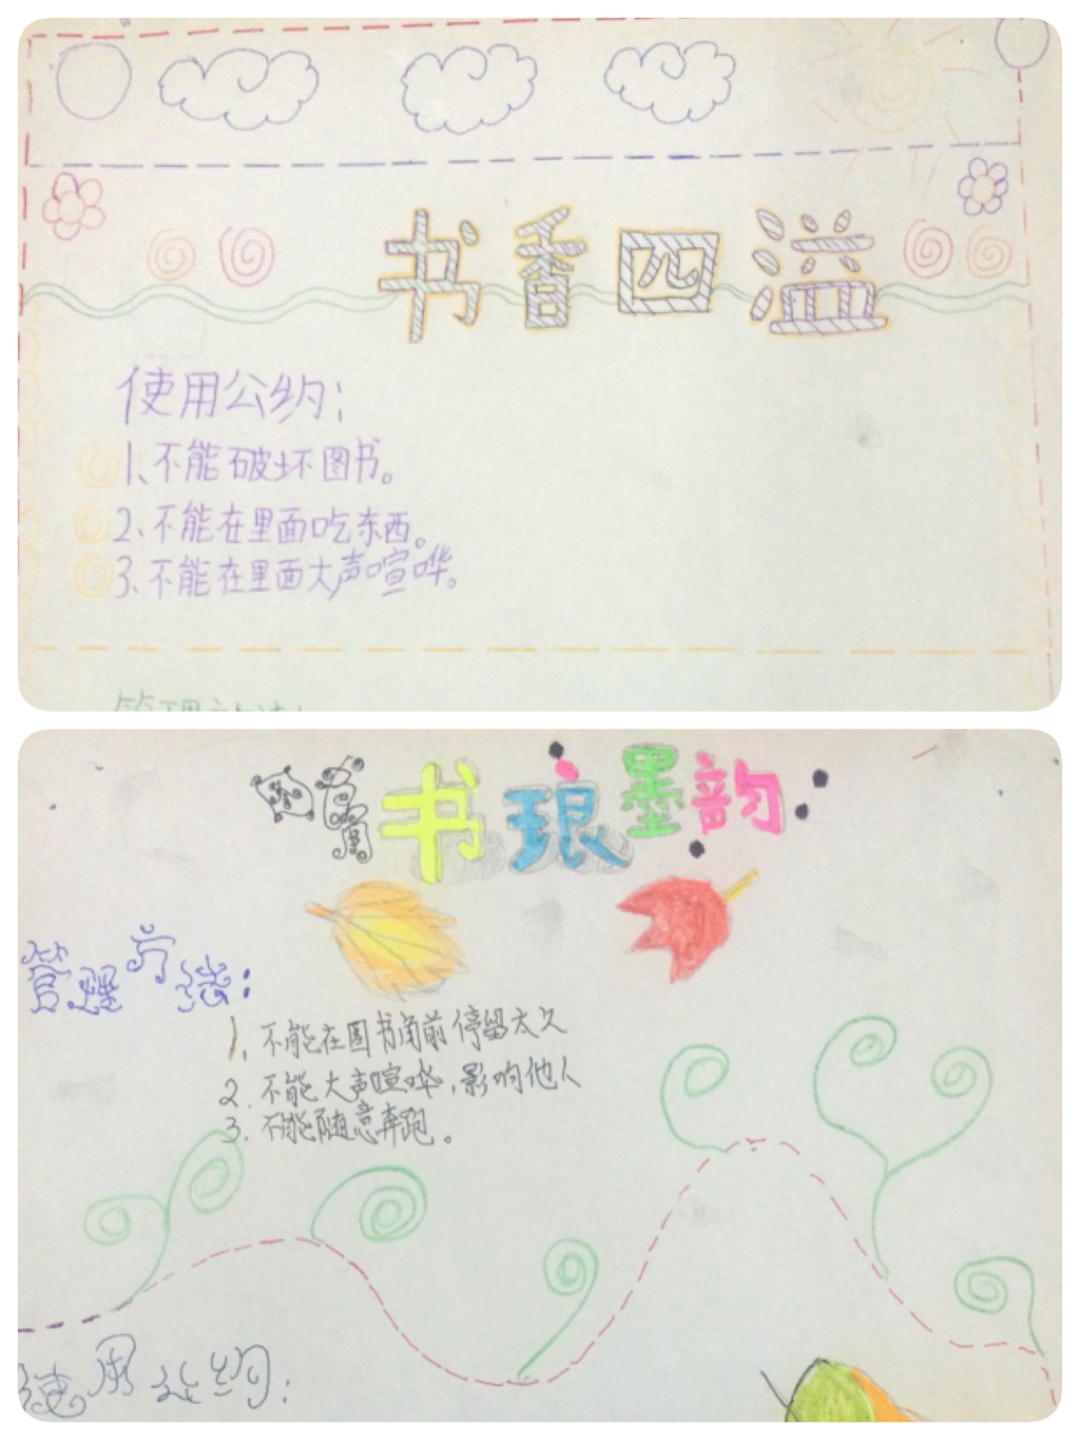 书香四溢
使用公约：
1、不能破坏图书。
2、不能在里面吃东西。
3、不能在里面大声喧哗。
书琅墨韵
管理方法：
1、不能在图书角前停留太久
2．不能大声喧哗，影响他人
3．不能随意奔跑。
使用公约：